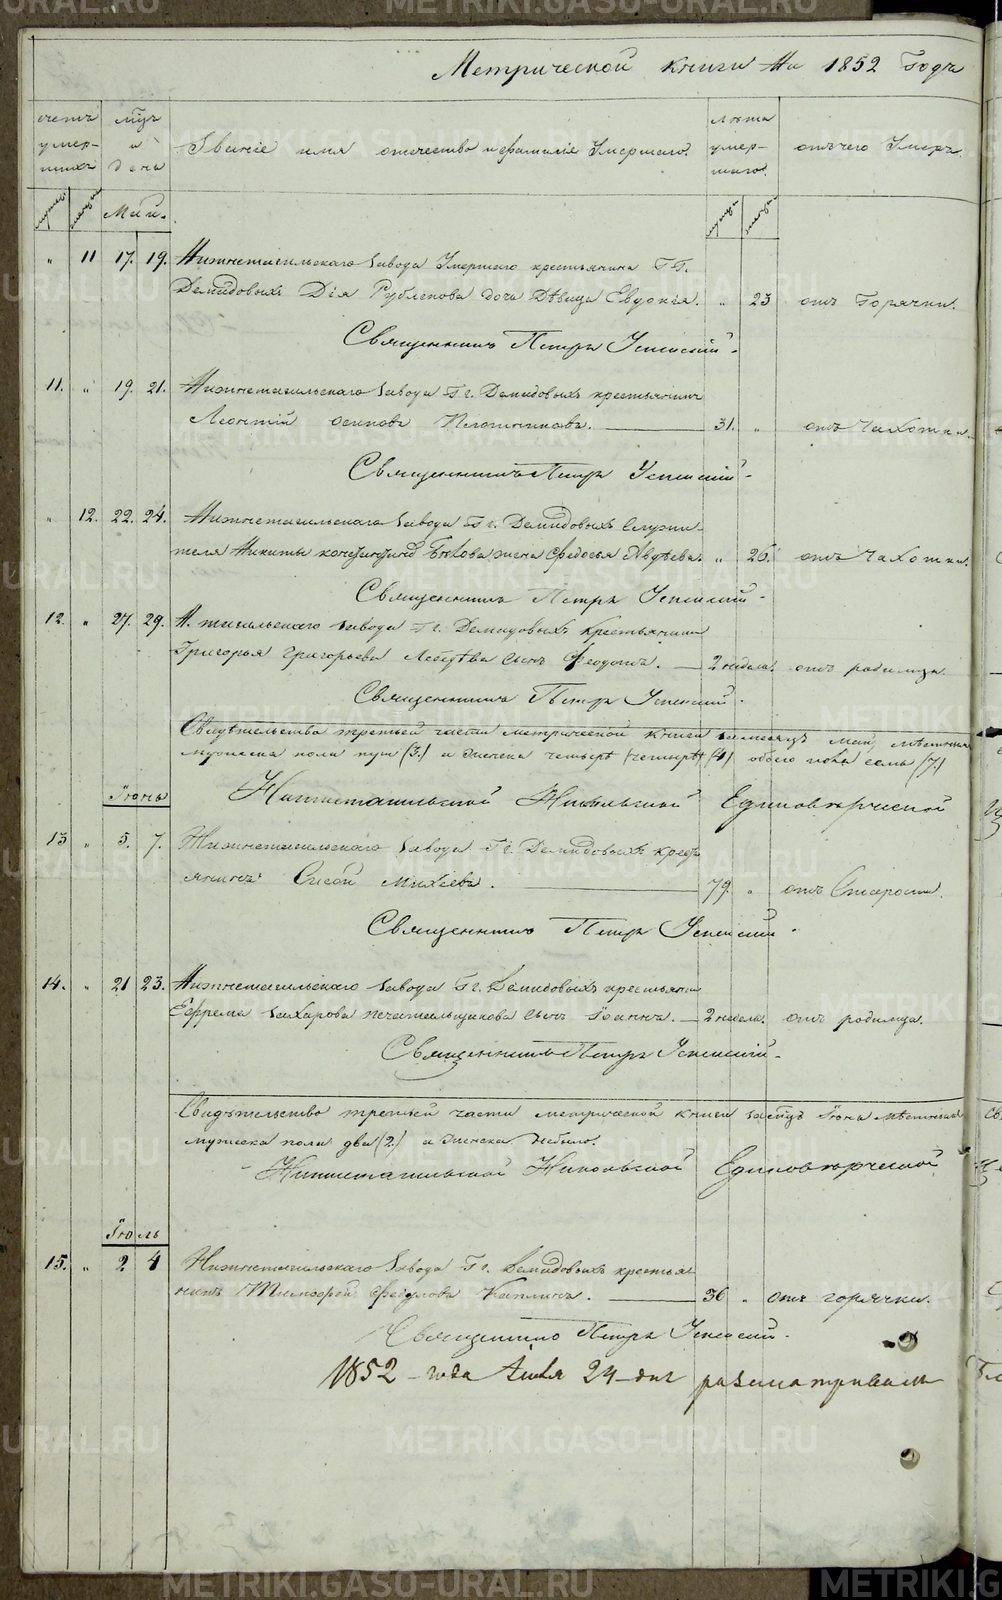 Метрической книги На 1852 Годъ
счетъ умер-шихъ
мѣцъ и дена
Званіе имя отчество и фамиліе Умершаго.
лѣта умер-шаго.
отъ чего Умеръ.
Маи.
" 11 17. 19. Нижнетагильскаго завода Умершаго крестьянина ГГ.
Демидовыхъ Дѣвица Евдокія. " 23 отъ Горячки.
Священникъ Петръ Успенскій.
11. " 19. 21. Нижнетагильскаго завода Гг. Демидовыхъ крестьянинъ
Леонтій осиповъ Плотниковъ. 31. " отъ Чахотки.
Священникъ Петръ Успенскій.
" 12. 22. 24. Нижнетагильскаго завода Гг. Демидовыхъ Служи-
теля Никиты жена Федосья Авдѣева. " 26. отъ Чахотки.
Священникъ Петръ Успенскій.
12. " 27. 29. Н. тагильскаго завода Гг. Демидовыхъ Крестьянина
Григорья Григорьева Лебедѣва сынъ Феодотъ. 2 недель. отъ родимца.
Священникъ Петръ Успенскій.
Свидѣтельство третьей части метрической книги за месяцъ май,
мужеска пола три (3.) и женска четыре (4) обоего пола семь (7.)
Нижнетагильской Никольской Единовѣрческой
Іюнь
13 " 5. 7. Нижнетагильскаго завода Гг. Демидовыхъ кресть
янинъ Сисой Михѣевъ. 79. " отъ Старости.
Священникъ Петръ Успенскій.
14. " 21 23. Нижнетагильскаго завода Гг. Демидовыхъ крестьяни
Ефрема Захарова Печатальщикова сынъ Іоаннъ. 2 недель. отъ родимца.
Священникъ Петръ Успенскій.
Свидѣтельство третьей части метрической книги за мѣцъ Іюнь
мужеска пола два (2.) а женска небыло.
Нижнетагильской Никольской Единовѣрческой
Іюль
15. " 2 4 Нижнетагильскаго завода Гг. Демидовыхъ крестья
нинъ Тимофей Федуловъ Каплинъ. 36 " отъ горячки.
Священникъ Петръ Успенскій.
1852 года Июля 24 дня разсматривалъ
METRIKI.GASO-URAL.RU